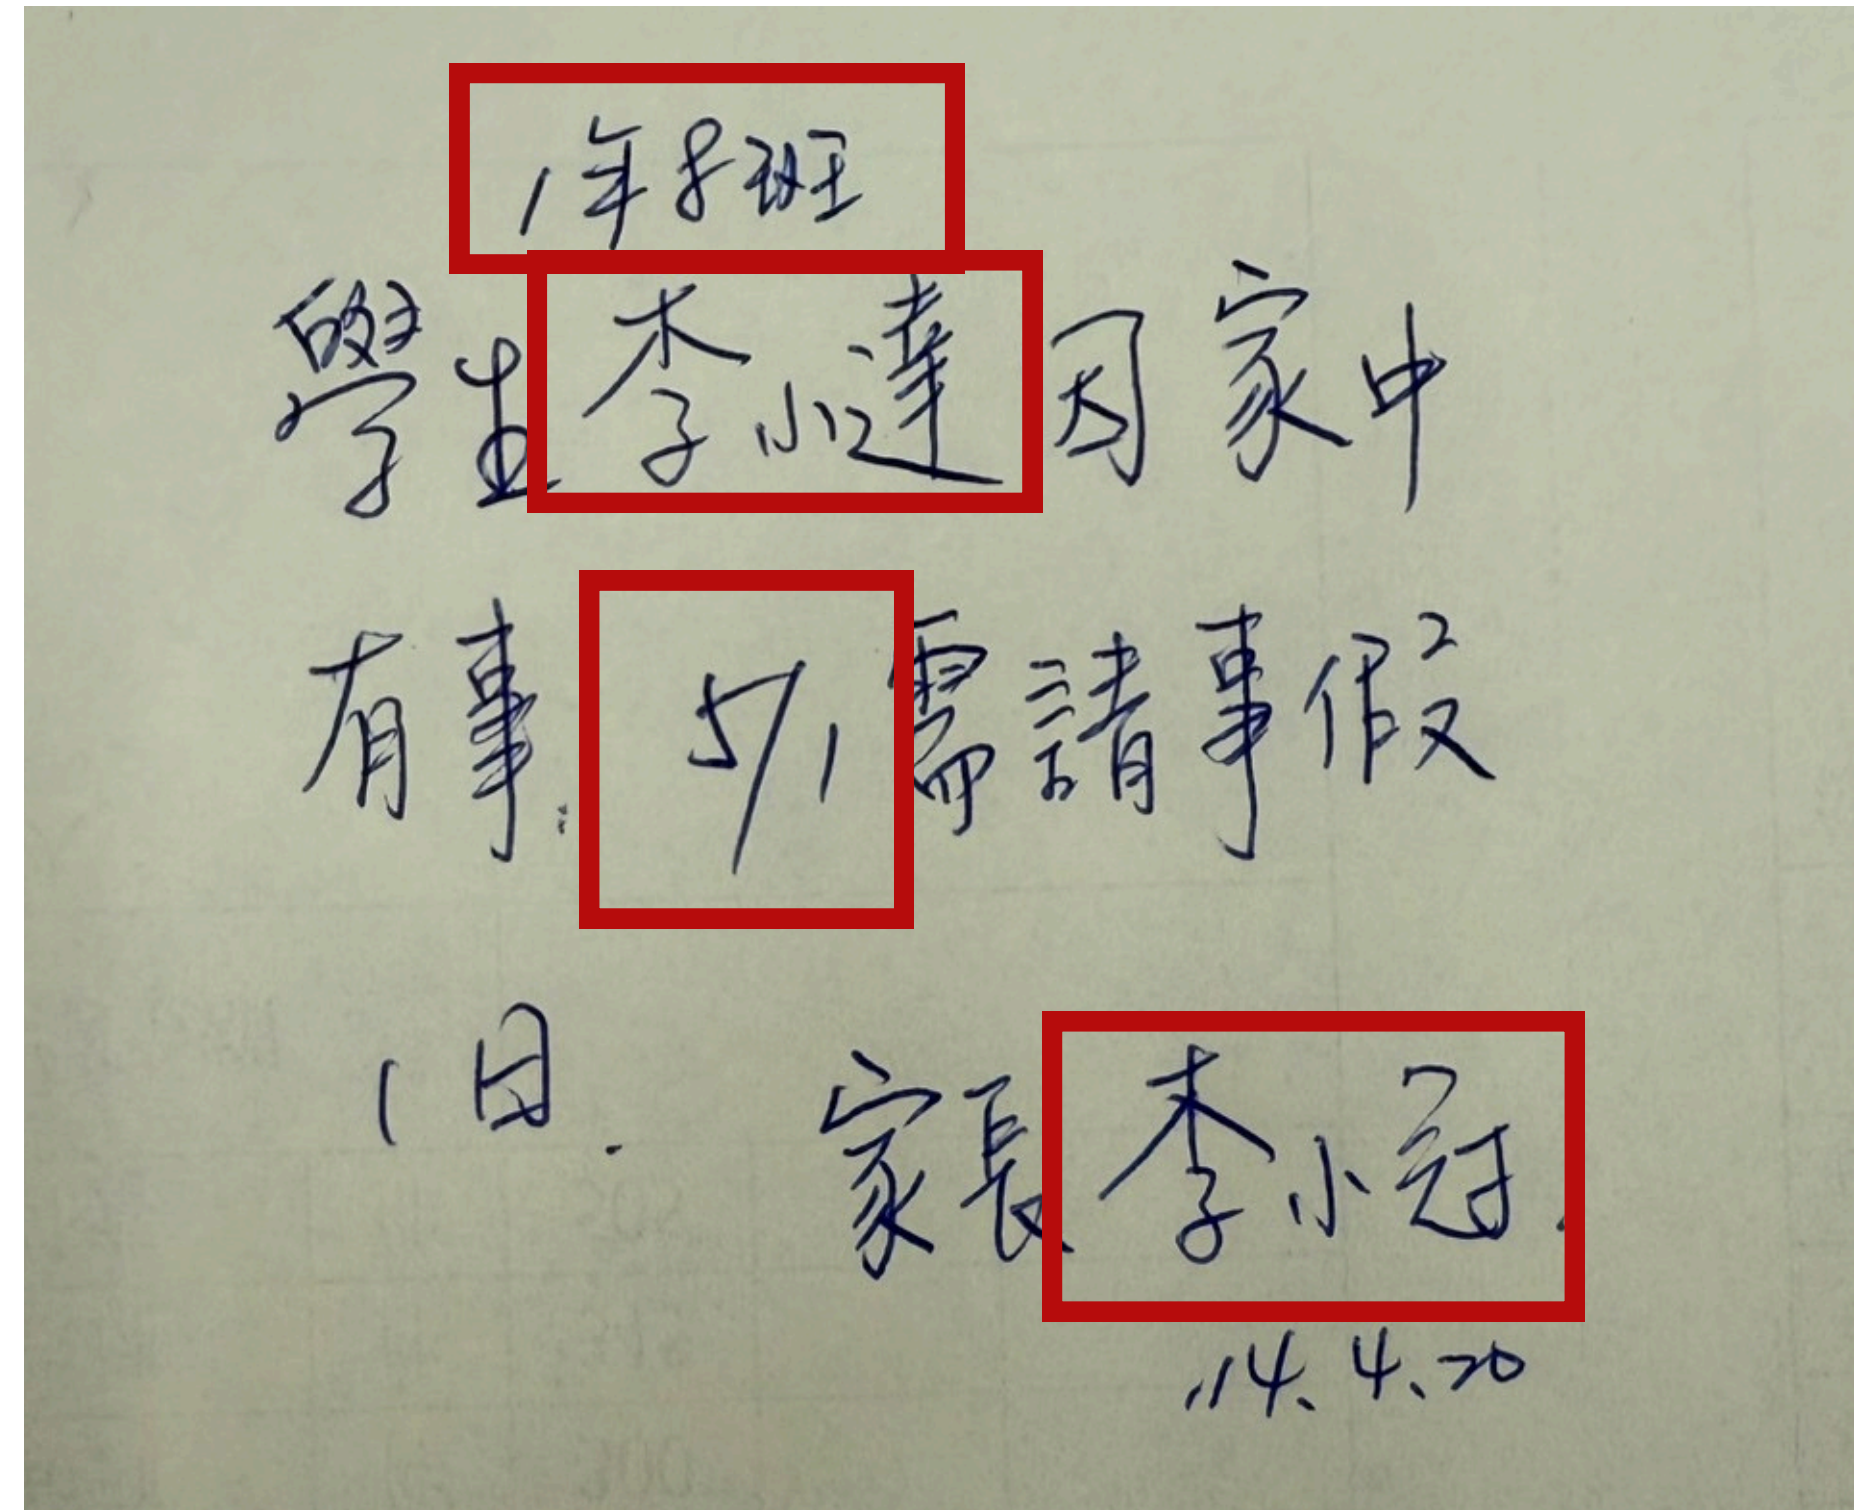 1年8班
學生李小達因家中
有事:5/1需請事假
1日.
家長李小冠.
114.4.20